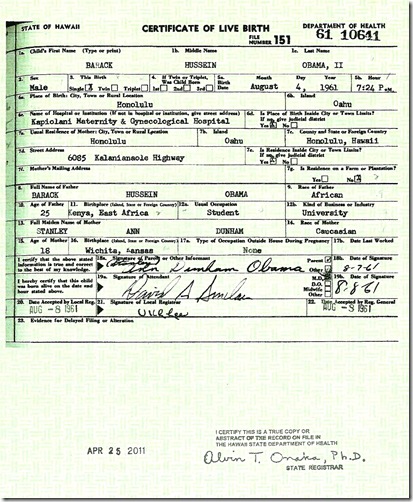 STATE OF HAWAII CERTIFICATE OF LIVE BIRTH DEPARTMENT OF HEALTH
FILE NUMBER 151 61 10641
1a. Child's First Name (Type or print) 1b. Middle Name 1c. Last Name
BARACK HUSSEIN OBAMA, II
2. Sex 3. This Birth 4. If Twin or Triplet, Was Child Born 5a. Birth Date Month Day Year 5b. Hour
Male Single X Twin Triplet 1st 2nd 3rd August 4, 1961 7:24 P.M.
6a. Place of Birth: City, Town or Rural Location 6b. Island
Honolulu Oahu
6c. Name of Hospital or Institution (If not in hospital or institution, give street address) 6d. Is Place of Birth Inside City or Town Limits?
If no, give judicial district
Kapiolani Maternity & Gynecological Hospital Yes X No
7a. Usual Residence of Mother: City, Town or Rural Location 7b. Island 7c. County and State or Foreign Country
Honolulu Oahu Honolulu, Hawaii
7d. Street Address 7e. Is Residence Inside City or Town Limits?
If no, give judicial district
6085 Kalanianaole Highway Yes X No
7f. Mother's Mailing Address 7g. Is Residence on a Farm or Plantation?
Yes No X
8. Full Name of Father 9. Race of Father
BARACK HUSSEIN OBAMA African
10. Age of Father 11. Birthplace (Island, State or Foreign Country) 12a. Usual Occupation 12b. Kind of Business or Industry
25 Kenya, East Africa Student University
13. Full Maiden Name of Mother 14. Race of Mother
STANLEY ANN DUNHAM Caucasian
15. Age of Mother 16. Birthplace (Island, State or Foreign Country) 17a. Type of Occupation Outside Home During Pregnancy 17b. Date Last Worked
18 Wichita, Kansas None
I certify that the above stated information is true and correct to the best of my knowledge. 18a. Signature of Parent or Other Informant Parent Other 18b. Date of Signature
Ann Dunham Obama 8-7-61
I hereby certify that this child was born alive on the date and hour stated above. 19a. Signature of Attendant M.D. D.O. Midwife Other 19b. Date of Signature
David A Sinclair 8-8-61
20. Date Accepted by Local Reg. 21. Signature of Local Registrar 22. Date Accepted by Reg. General
AUG -8 1961 U K Lee AUG -8 1961
23. Evidence for Delayed Filing or Alteration
APR 25 2011
I CERTIFY THIS IS A TRUE COPY OR
ABSTRACT OF THE RECORD ON FILE IN
THE HAWAII STATE DEPARTMENT OF HEALTH
Alvin T. Onaka, Ph.D.
STATE REGISTRAR